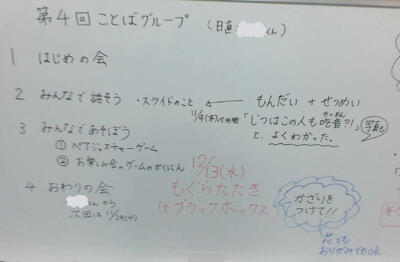 第4回 ことばグループ (日直 くん)
1 はじめの会
2 みんなで話そう ・スクイドのこと ← もんだい + せつめい
11/9(木)15分間「じつはこの人も吃音?!」 写真も
きつおん
と、よくわかった。
3 みんなであそぼう
① ペアジェスチャーゲーム
② お楽しみ会のゲームのかくにん
12/13(水)
4 おわりの会
もぐらたたき
(+ブラックボックス)
くんから
次回は 11/29(水)
かざりを
つけて!!
花でも
おりがみでもOK